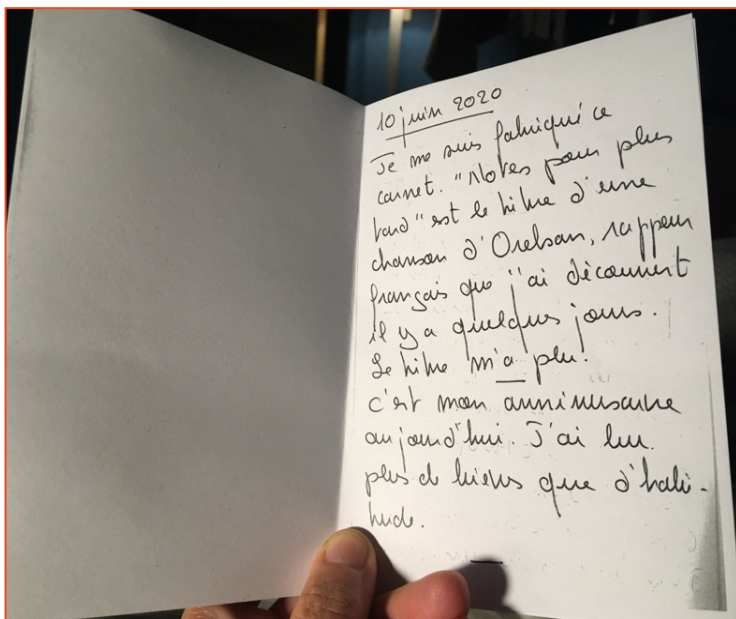 10 juin 2020
Je me suis fabriqué ce
carnet. "Notes pour plus
tard" est le titre d'une
chanson d'Orelsan, rappeur
français que j'ai découvert
il y a quelques jours.
Le titre m'a plu.
c'est mon anniversaire
aujourd'hui. J'ai bu
plus de bières que d'habi-
tude.